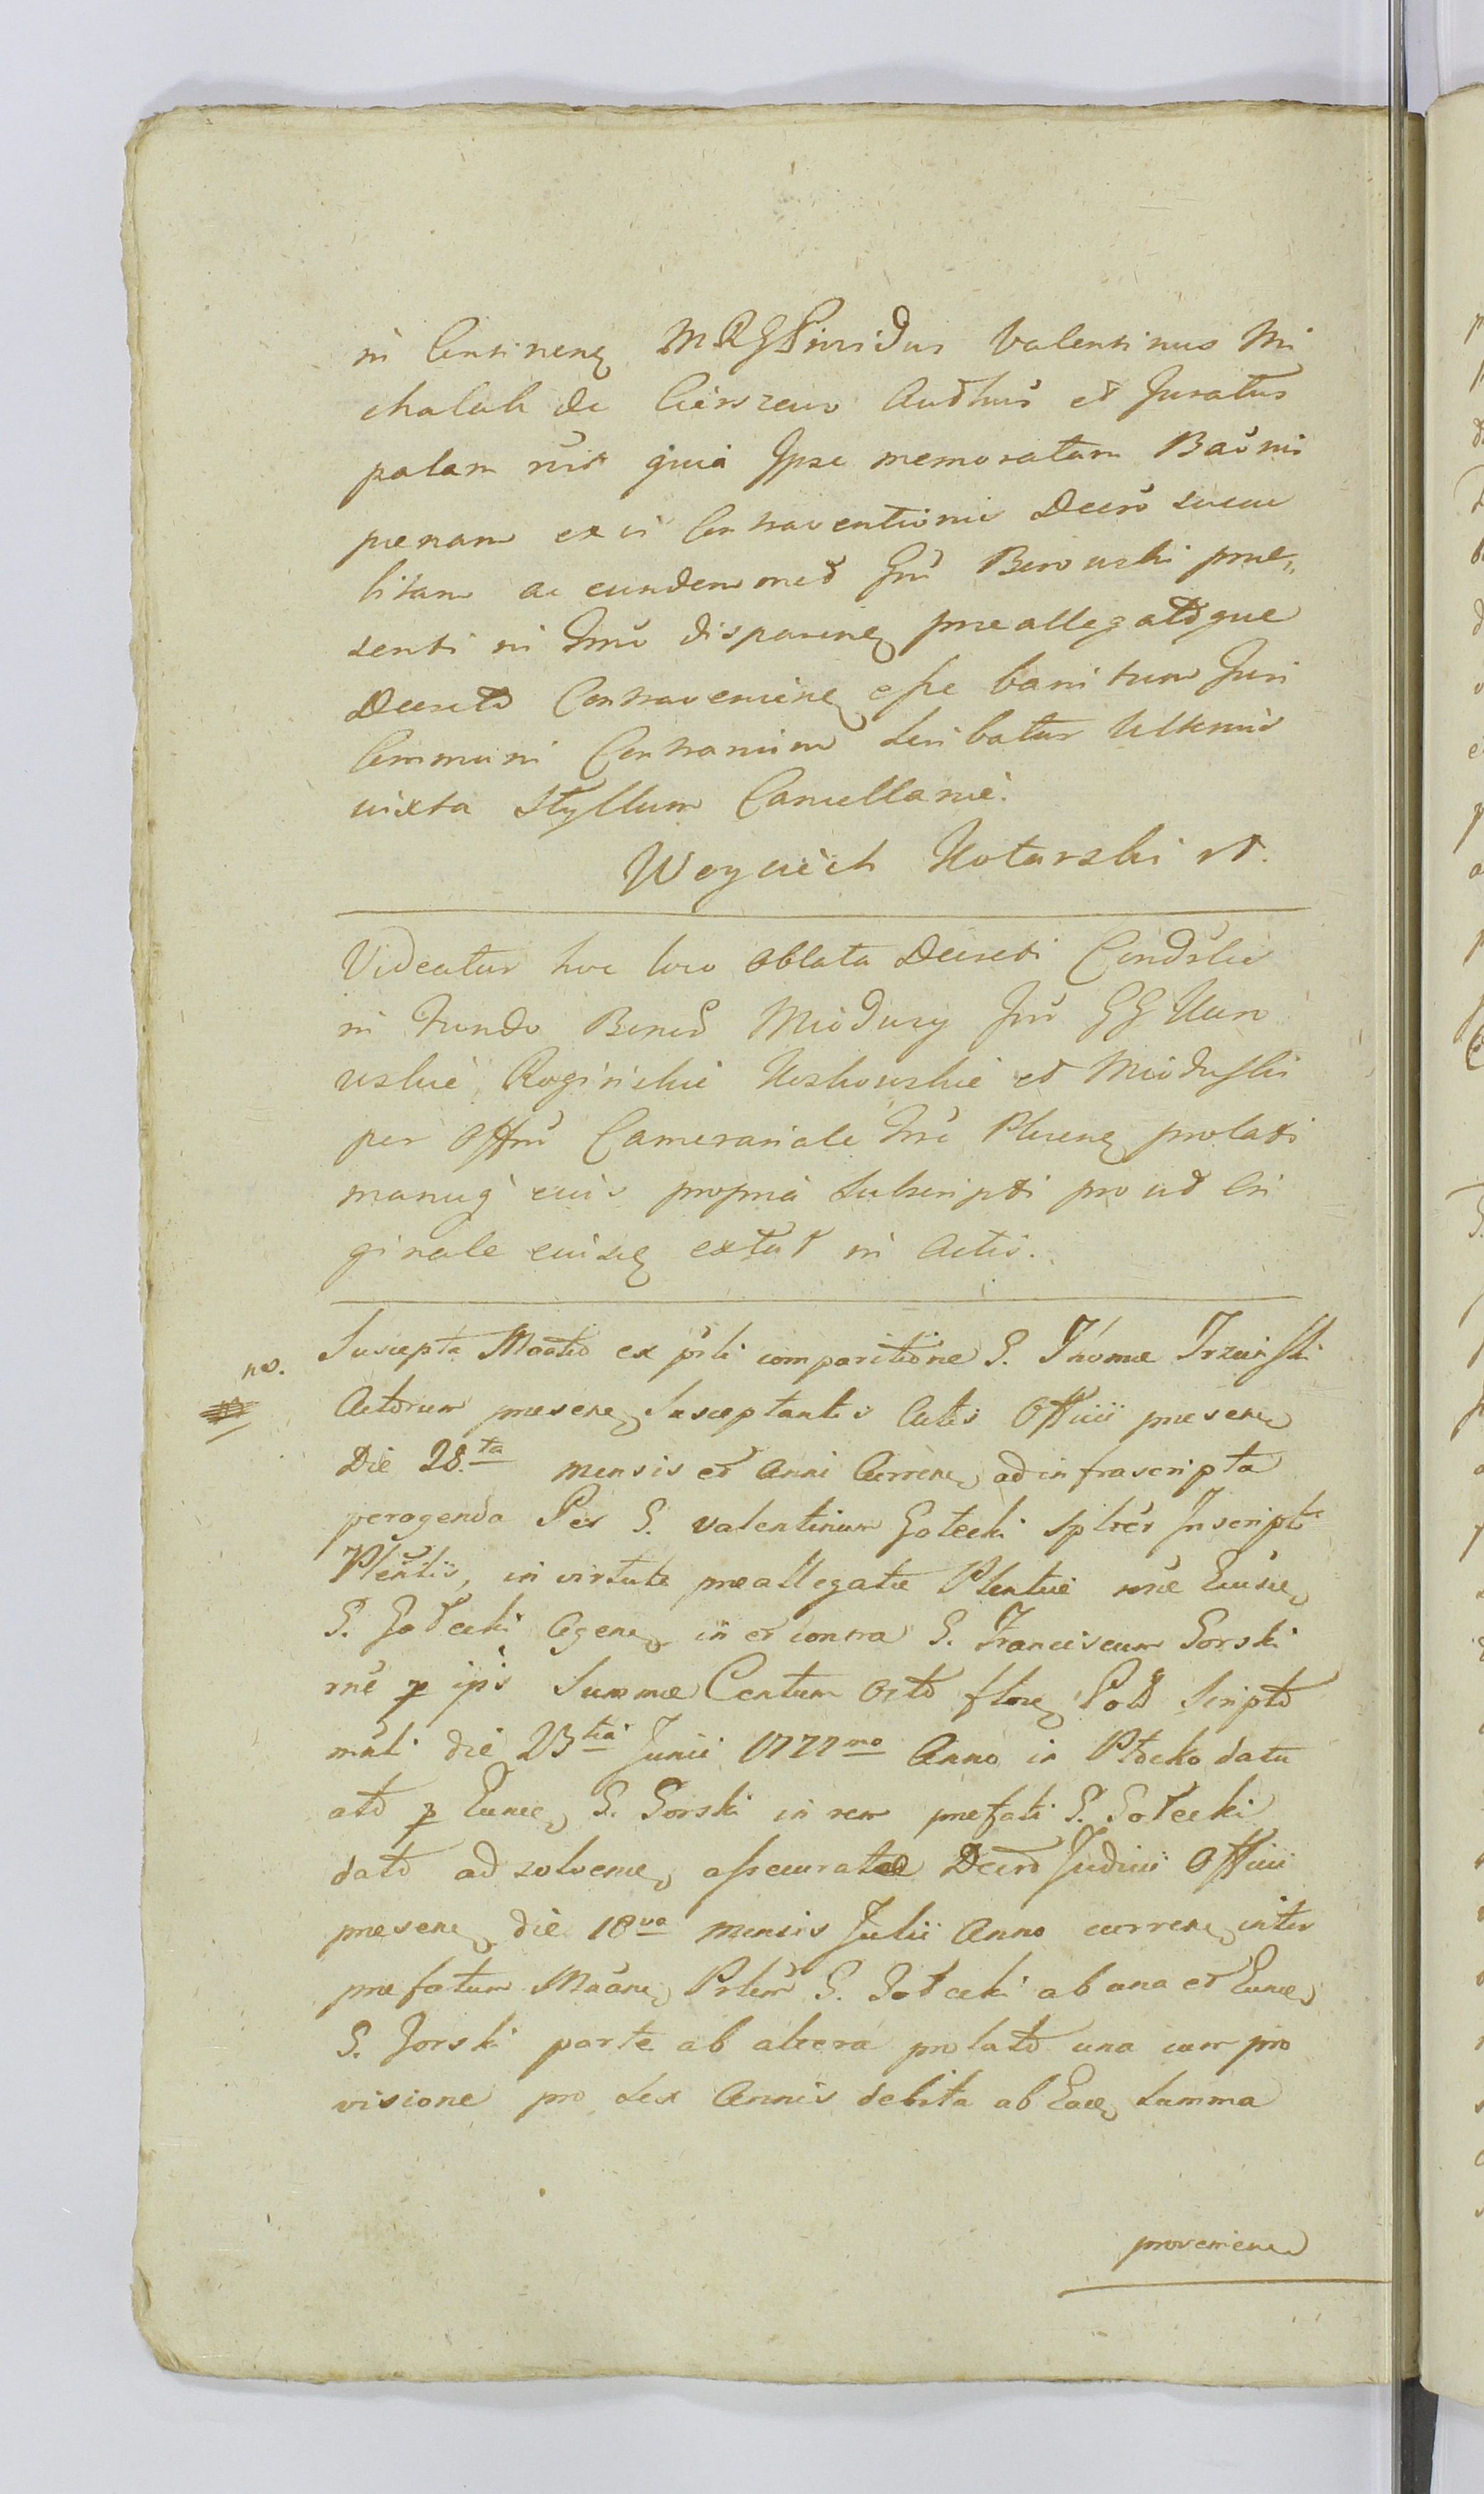 in Continenq MRGProvidus Valentinus Mi
chalak de Cierszewo Authus et Juratus
palam rnt quia Ipse memoratam Bannis
penam ex vi Contraventionis Decro succu
bitam ac eundemmet Gnr Borowski prae„
senti in Tmo disparenq praeallegatoque
Decreto Contravenienq esse banitum Juri
Communi Contrarium scribatur Ulterius
iuxta Styllum Cancellariae.
Woyciech Notarski
Videatur hoc loco Oblata Decreti Condslis
in Fundo Bonor Mioduszy Inr GG Nun
Rogińskie et Mioduski
per Offm Camerariale Trre Plocenq prolati
manuq eius propria Subscripti prout Ori
ginale eiusq extat in Actis.
no.
Suscepta Maatio ex prli comparitione G. Thomae Trzciński
Actorum presene Susceptantis Actis Officii presene
Die 28.ta mensis et Anni Currene ad infrascripta
peragenda Per G. Valentinum Gołecki Spltr Inscript
Plentis, in virtute praeallegatae Plentiae rone Eiusde
G. Gołecki Agene in et contra G. Franciscum Gorski
rne p ipis Summae Centum Octo flore Pol Scripto
die 23tia Junii 1777mo Anno in Płocko datu
ato p Eunde G. Gorski in rem prefati G. Gołecki
dato ad solvene assecuratae Decro Judicii Officii
presene die 18va mensis Julii Anno currene inter
prefatum G. Gołecki ab una et Eunde
G. Gorski parte ab altera prolato una cum pro
visione pro sex Annis debita ab Eade Summa
proveniene